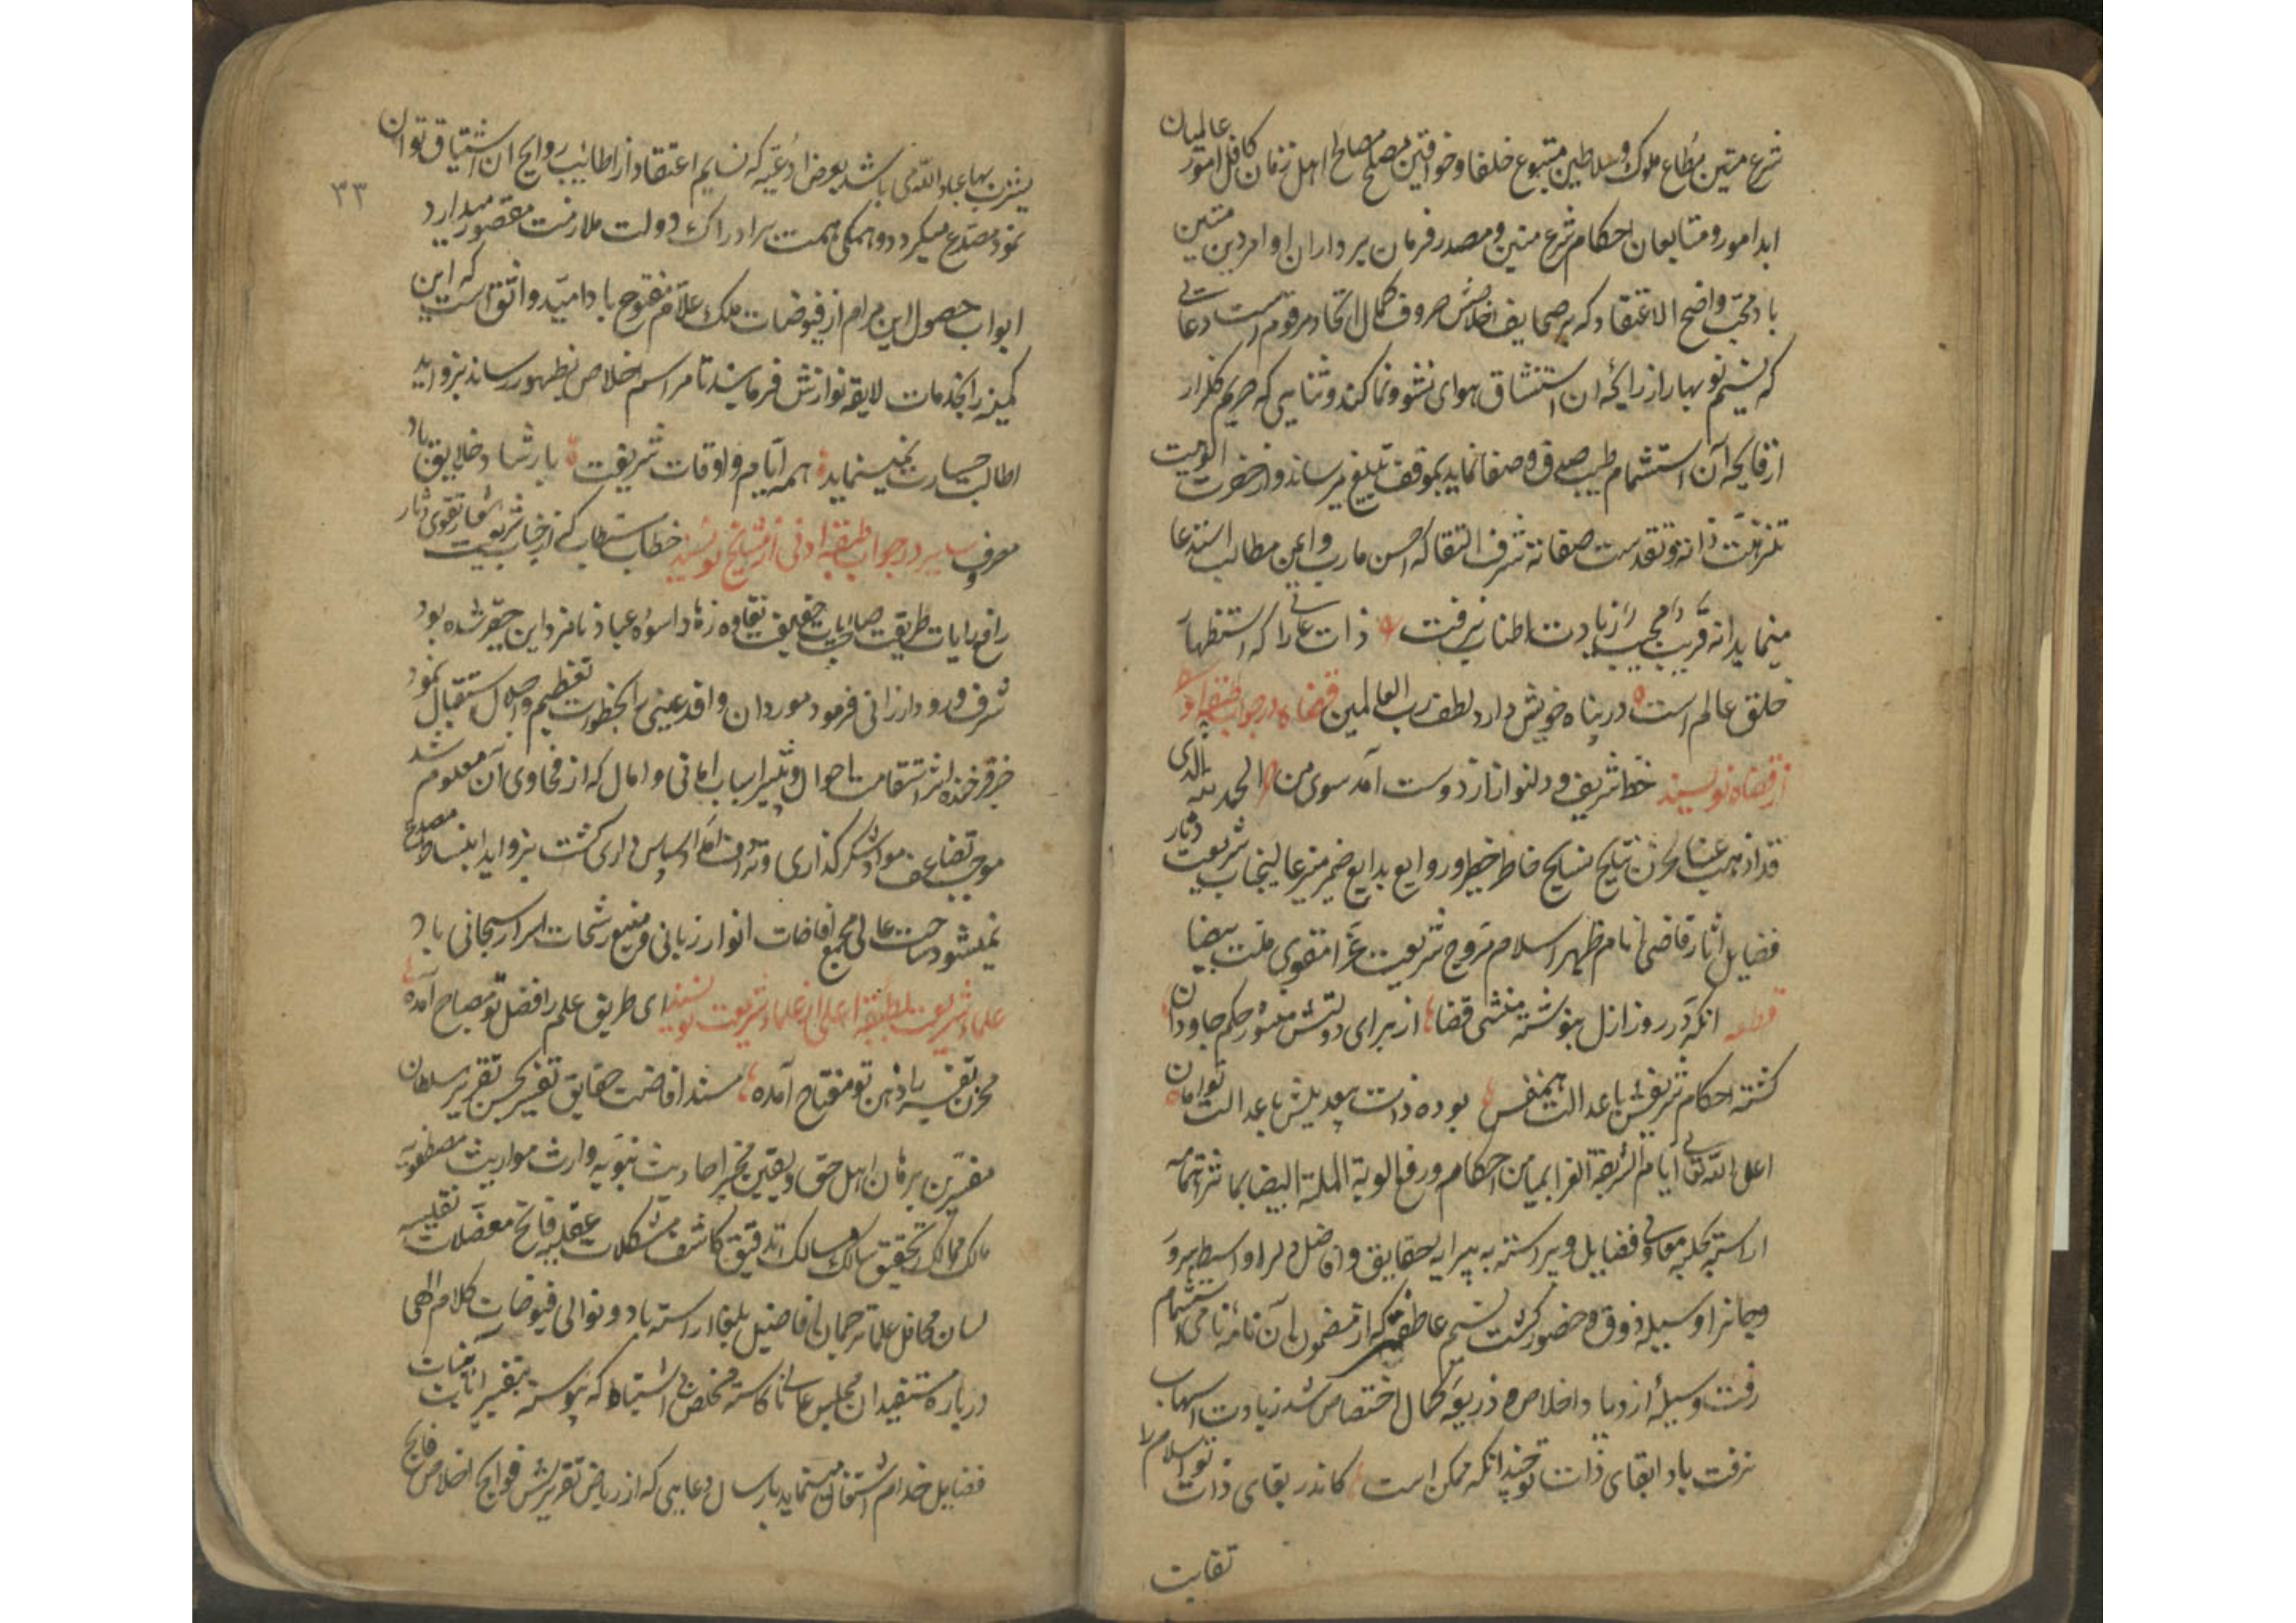 شرع متین مطاع ملوک و سلاطین متبوع خلفا و خواقین مصلح مصالح اهل زمان کافل امور عالمیان
ابدا امور و متابعان احکام شرع متین و مصدر فرمان برداران اوامر دین متین
باد محب واضح الاعتقاد که بر صحایف اخلاصش حروف کمال اتحاد مرقوم است دعائی
که نسیم نوبهار از رایحه آن استنشاق هوای نشو و نما کند و ثنایی که حریم گلزار
از فایحه آن استشمام طیب صدق و صفا نماید بموقف تبلیغ میرساند و از حضرت الوهیت
تنزهت ذاته و تقدست صفاته شرف التقا که احسن مارب و اعین مطالب استدعا
مینماید انه قریب مجیب زیادت اطناب نرفت ذات عالی را که استظهار
خلق عالم است در پناه خویش دارد لطف رب العالمین قضاه در جواب طبقه ادنی
از قضاه نویسند خط شریف و دلنواز از دوست آمد سوی من الحمد لله الذی
قد اذهب عنا الحزن نتایج نسایج خاطر خطیر و روایع بدایع ضمیر منیر عالیجناب شریعت دثار
فضایل آثار قاضی انام مظهر اسلام مروج شریعت غرا مقوی ملت بیضا
قطعه آنکه در روز ازل بنوشته منشی قضا از برای دولتش منشور حکم جاودان
گشته احکام شریفش با عدالت همنفس بوده ذات بعدیلش با عدالت توامان
اعلی الله تعالی ایام الشریعة الغرا بمیامن احکامه و رفع الویة الملة البیضا بماثر اهتمامه
آراسته بحلیه معالی فضایل و پیراسته به پیرایه حقایق و افاضل دلرا واسطه سرور
و جانرا وسیله ذوق و حضور گشت نسیم عاطفتی که از مضمون آن نامه نامی استشمام
رفت وسیله ازدیاد اخلاص و ذریعه کمال اختصاص شد زیادت اسهاب
نرفت باد ابقای ذات تو چندانکه ممکن است کاندر بقای ذات تو اسلام را
تقایت
۳۳
یشرب بها عباد الله می باشد بعرض ادعیه که نسایم اعتقاد از اطائب روایح آن اشتیاق توان
نمود مصدع میگردد و همگی همت بر ادراک دولت ملازمت مقصور میدارد
ابواب حصول این مرام از فیوضات ملک علام مفتوح باد امید واثق است که این
کمینه را بخدمات لایقه نوازش فرمایند تا مراسم اخلاص بظهور رساند بزواید
اطالت جسارت نمینماید همه ایام و اوقات شریفت بارشاد خلایق باد
معروف سایر در جواب طبقه ادنی از مشایخ نویسند خطاب مستطاب که از جناب شریعت شعار تقوی دثار
رافع رایات طریقت صاحب آیات حقیقت نقاوه زهاد اسوه عباد نامزد این حقیر شده بود
شرف ورود ارزانی فرمود مورد آن وافد غیبی را بخطوات تعظیم و اجلال استقبال نمود
خبر فرخنده اثر استقامت احوال و تیسیر اسباب امانی و امال که از فحاوی آن معلوم شد
موجب تضاعف مواد شکرگذاری و ترادف امداد سپاس داری گشت بزواید انبساط مصدع
نمیشود ساحت عالی مجمع افاضات انوار ربانی و منبع رشحات اسرار سبحانی باد
علماء شریعت بطبقه اعلی از علماء شریعت نویسند ای طریق علم را فضل تو مصباح آمده
مخزن تفسیر را ذهن تو مفتاح آمده مسند افاضت حقایق تفسیر بحسن تقریر سلطان
مفسرین برهان اهل حق و یقین مخبر احادیث نبویه وارث مواریث مصطفویه
مالک ممالک تحقیق سالک مسالک تدقیق کاشف مشکلات عقلیه فاتح معضلات نقلیه
لسان محافل علما ترجمان افاضیل بلغا آراسته باد و توالی فیوضات کلام الهی
درباره مستفیدان مجلس عالی ناکاسته مخلص بی اشتباه که پیوسته بتفسیر آیات بینات
فضایل خدام اشتغال مینماید بارسال دعایی که از ریاض تقریرش فوایح اخلاص فایح